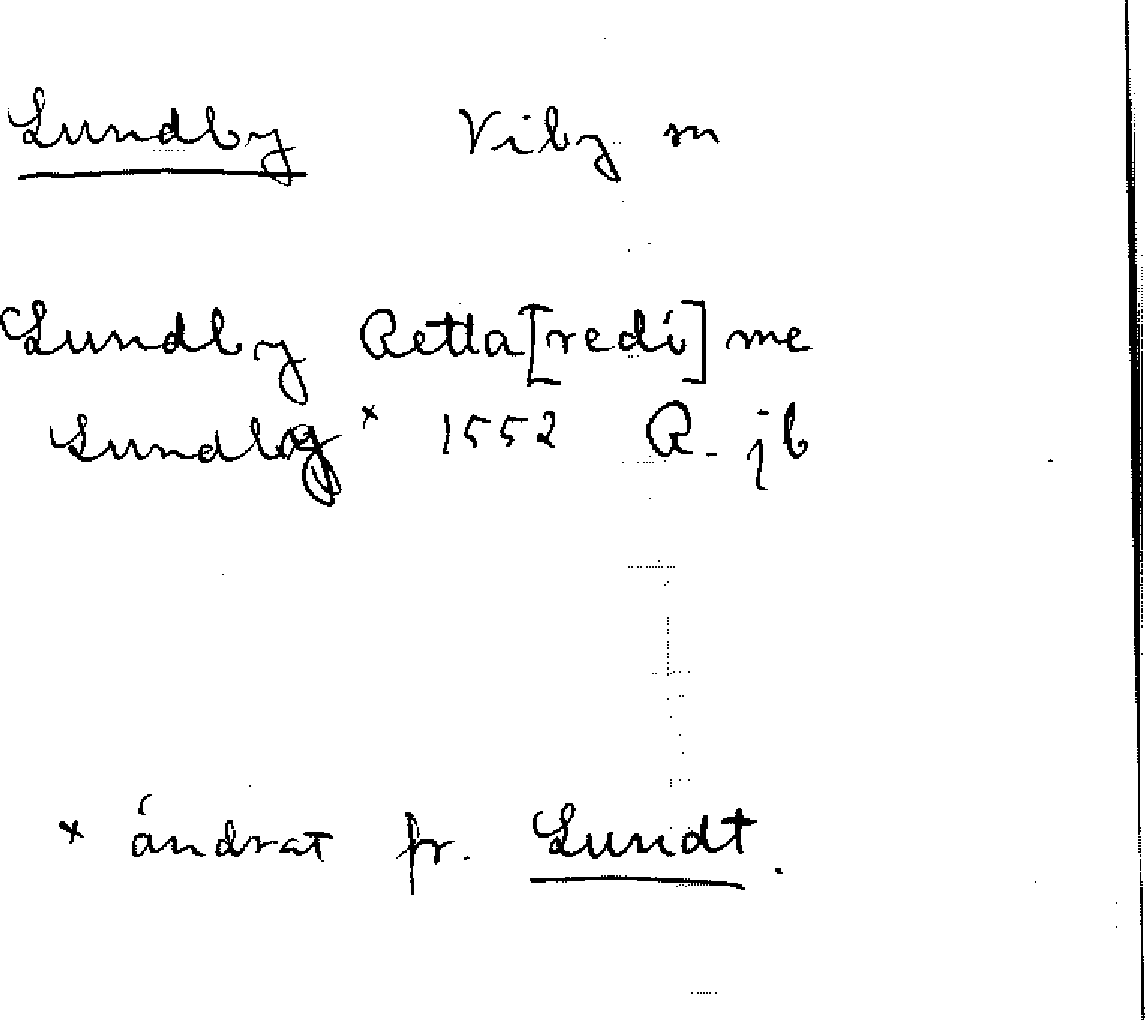 Lundby Viby sn
Lundby Retta[redi] me
Lundby × 1552 R. jb
× ändrat fr. Lundt.